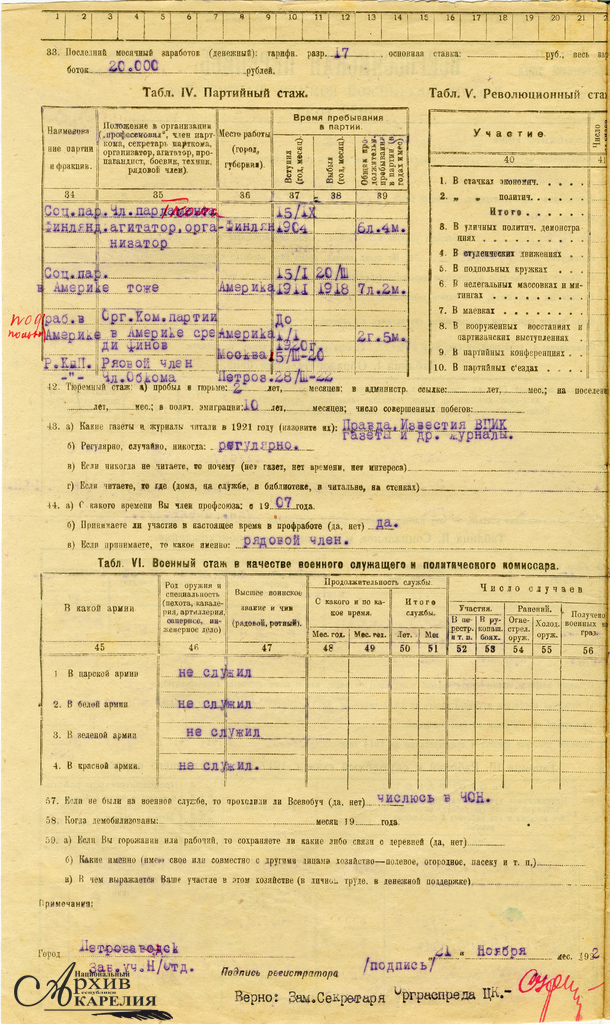 1 2 3 4 5 6 7 8 9 10 11 12 13 14 15 16 17 18 19 20 21
33. Последний месячный заработок (денежный): тарифн. разр. 17, основная ставка: руб., весь
боток 20.000 рублей.
Табл. IV. Партийный стаж.
Табл. V. Революционный
Наименование партии и фракции.
Положение в организации („профессионал", член парткома, секретарь парткома, организатор, агитатор, пропагандист, боевик, техник, рядовой член).
Место работы (город, губерния).
Время пребывания в партии.
Вступил (год, месяц).
Выбыл (год, месяц).
Общая продолжительн. пребывания в партии (в годах и мес.)
Участие
Число
34 35 36 37 38 39
40 41
Соц.пар. Чл. парткома 15/IX
Финлянд. агитатор, орга- Финлян 1904 6л.4м.
низатор
Соц.пар. 15/I 20/III
в Америке тоже Америка 1911 1918 7л.2м.
раб.в Орг.Ком.партии До
Америке в Америке сре Америка 1/I 2г.5м.
ди финов 1920г.
Р.К.П. Рядовой член Москва 5/III-20
-"- Чл.Обкома Петроз. 28/III-22
1. В стачках экономич.
2. „ „ политич.
Итого
3. В уличных политич. демонстра
циях
4. В студенческих движениях
5. В подпольных кружках
6. В нелегальных массовках и ми-
тингах
7. В маевках
8. В вооруженных восстаниях и
партизанских выступлениях
9. В партийных конференциях
10. В партийных с'ездах
42. Тюремный стаж: а) пробыл в тюрьме: 2 лет, месяцев; в администр. ссылке: лет, мес.; на поселе
лет, мес.; в полит. эмиграции: 10 лет, месяцев; число совершенных побегов:
43. а) Какие газеты и журналы читали в 1921 году (назовите их): Правда, Известия ВЦИК
газеты и др. журналы.
б) Регулярно, случайно, никогда: регулярно.
в) Если никогда не читаете, то почему (нет газет, нет времени, нет интереса)
г) Если читаете, то где (дома, на службе, в библиотеке, в читальне, на стенках)
44. а) С какого времени Вы член профсоюза: с 1907 года.
б) Принимаете ли участие в настоящее время в профработе (да, нет) да.
в) Если принимаете, то какое именно: рядовой член.
Табл. VI. Военный стаж в качестве военного служащего и политического комиссара.
В какой армии
Род оружия и специальность (пехота, кавалерия, артиллерия, саперное, инженерное дело)
Высшее воинское звание и чин (рядовой, ротный).
Продолжительность службы.
С какого и по какое время.
Итого службы.
Мес. год. Мес. год. Лет. Мес
Число случаев
Участия. Ранений.
В перестр. и т. п. В рукопаш. боях. Огнестрел. оруж. Холод. оруж.
Получено военных
45 46 47 48 49 50 51 52 53 54 55 56
1 В царской армии не служил
2. В белой армии не служил
3. В зеленой армии не служил
4. В красной армии. не служил.
57. Если не были на военной службе, то проходили ли Всевобуч (да, нет) числюсь в ЧОН.
58. Когда демобилизованы: месяц 19 года.
59. а) Если Вы горожанин или рабочий, то сохраняете ли какие либо связи с деревней (да, нет)
б) Какие именно (имеете свое или совместно с другими лицами хозяйство—полевое, огородное, пасеку и т. п.)
в) В чем выражается Ваше участие в этом хозяйстве (в личном труде, в денежной поддержке)
Примечания:
Город Петрозаводск 21 Ноября мес. 1922
Зав.уч.Н/Отд. Подпись регистратора /подпись/
Верно: Зам.Секретаря Орграспреда ЦК.-
Национальный
Архив
Республики
Карелия